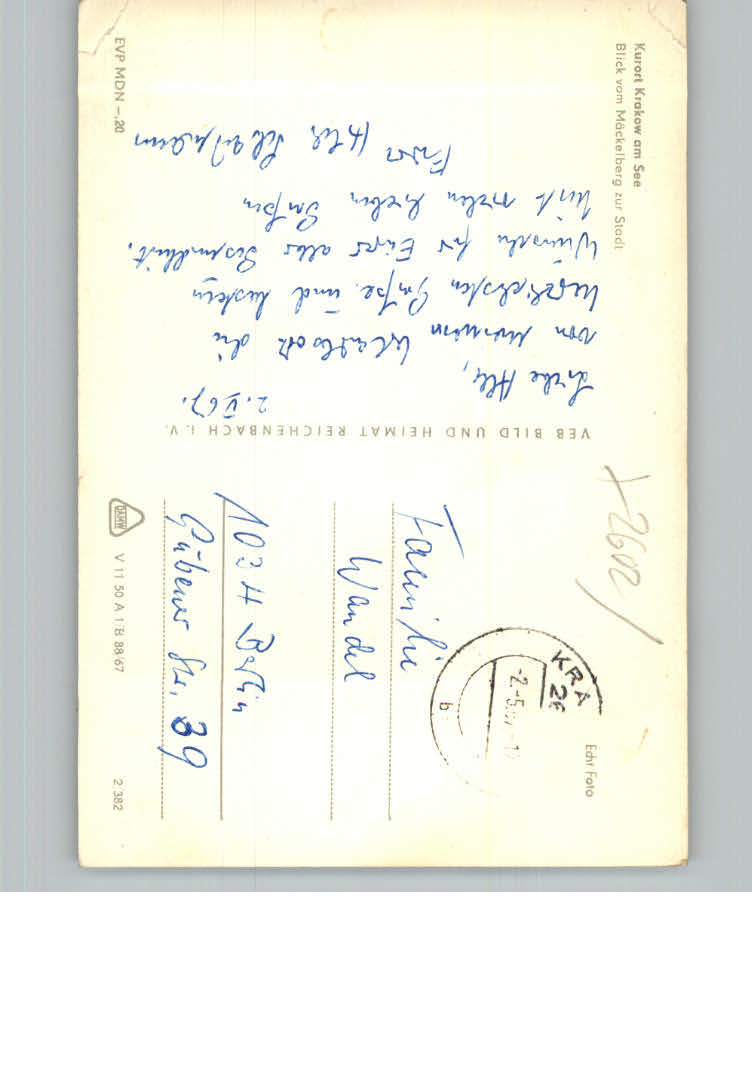 Kurort Krakow am See
Blick vom Mäckelberg zur Stadt
EVP MDN -,20
2. V 67.
Liebe Alle,
von unserem Urlaubsort die
herzlichsten Grüße und besten
Wünsche für Eurer aller Gesundheit.
Mit vielen lieben Grüßen
Eure
VEB BILD UND HEIMAT REICHENBACH i. V.
+2602/
KRA
26
-2.-5.67
b
Echt Foto
Familie
Wandel
1034 Berlin
Gubener Str. 39
DAMW
V 11 50 A 1/B 88/67
2 382